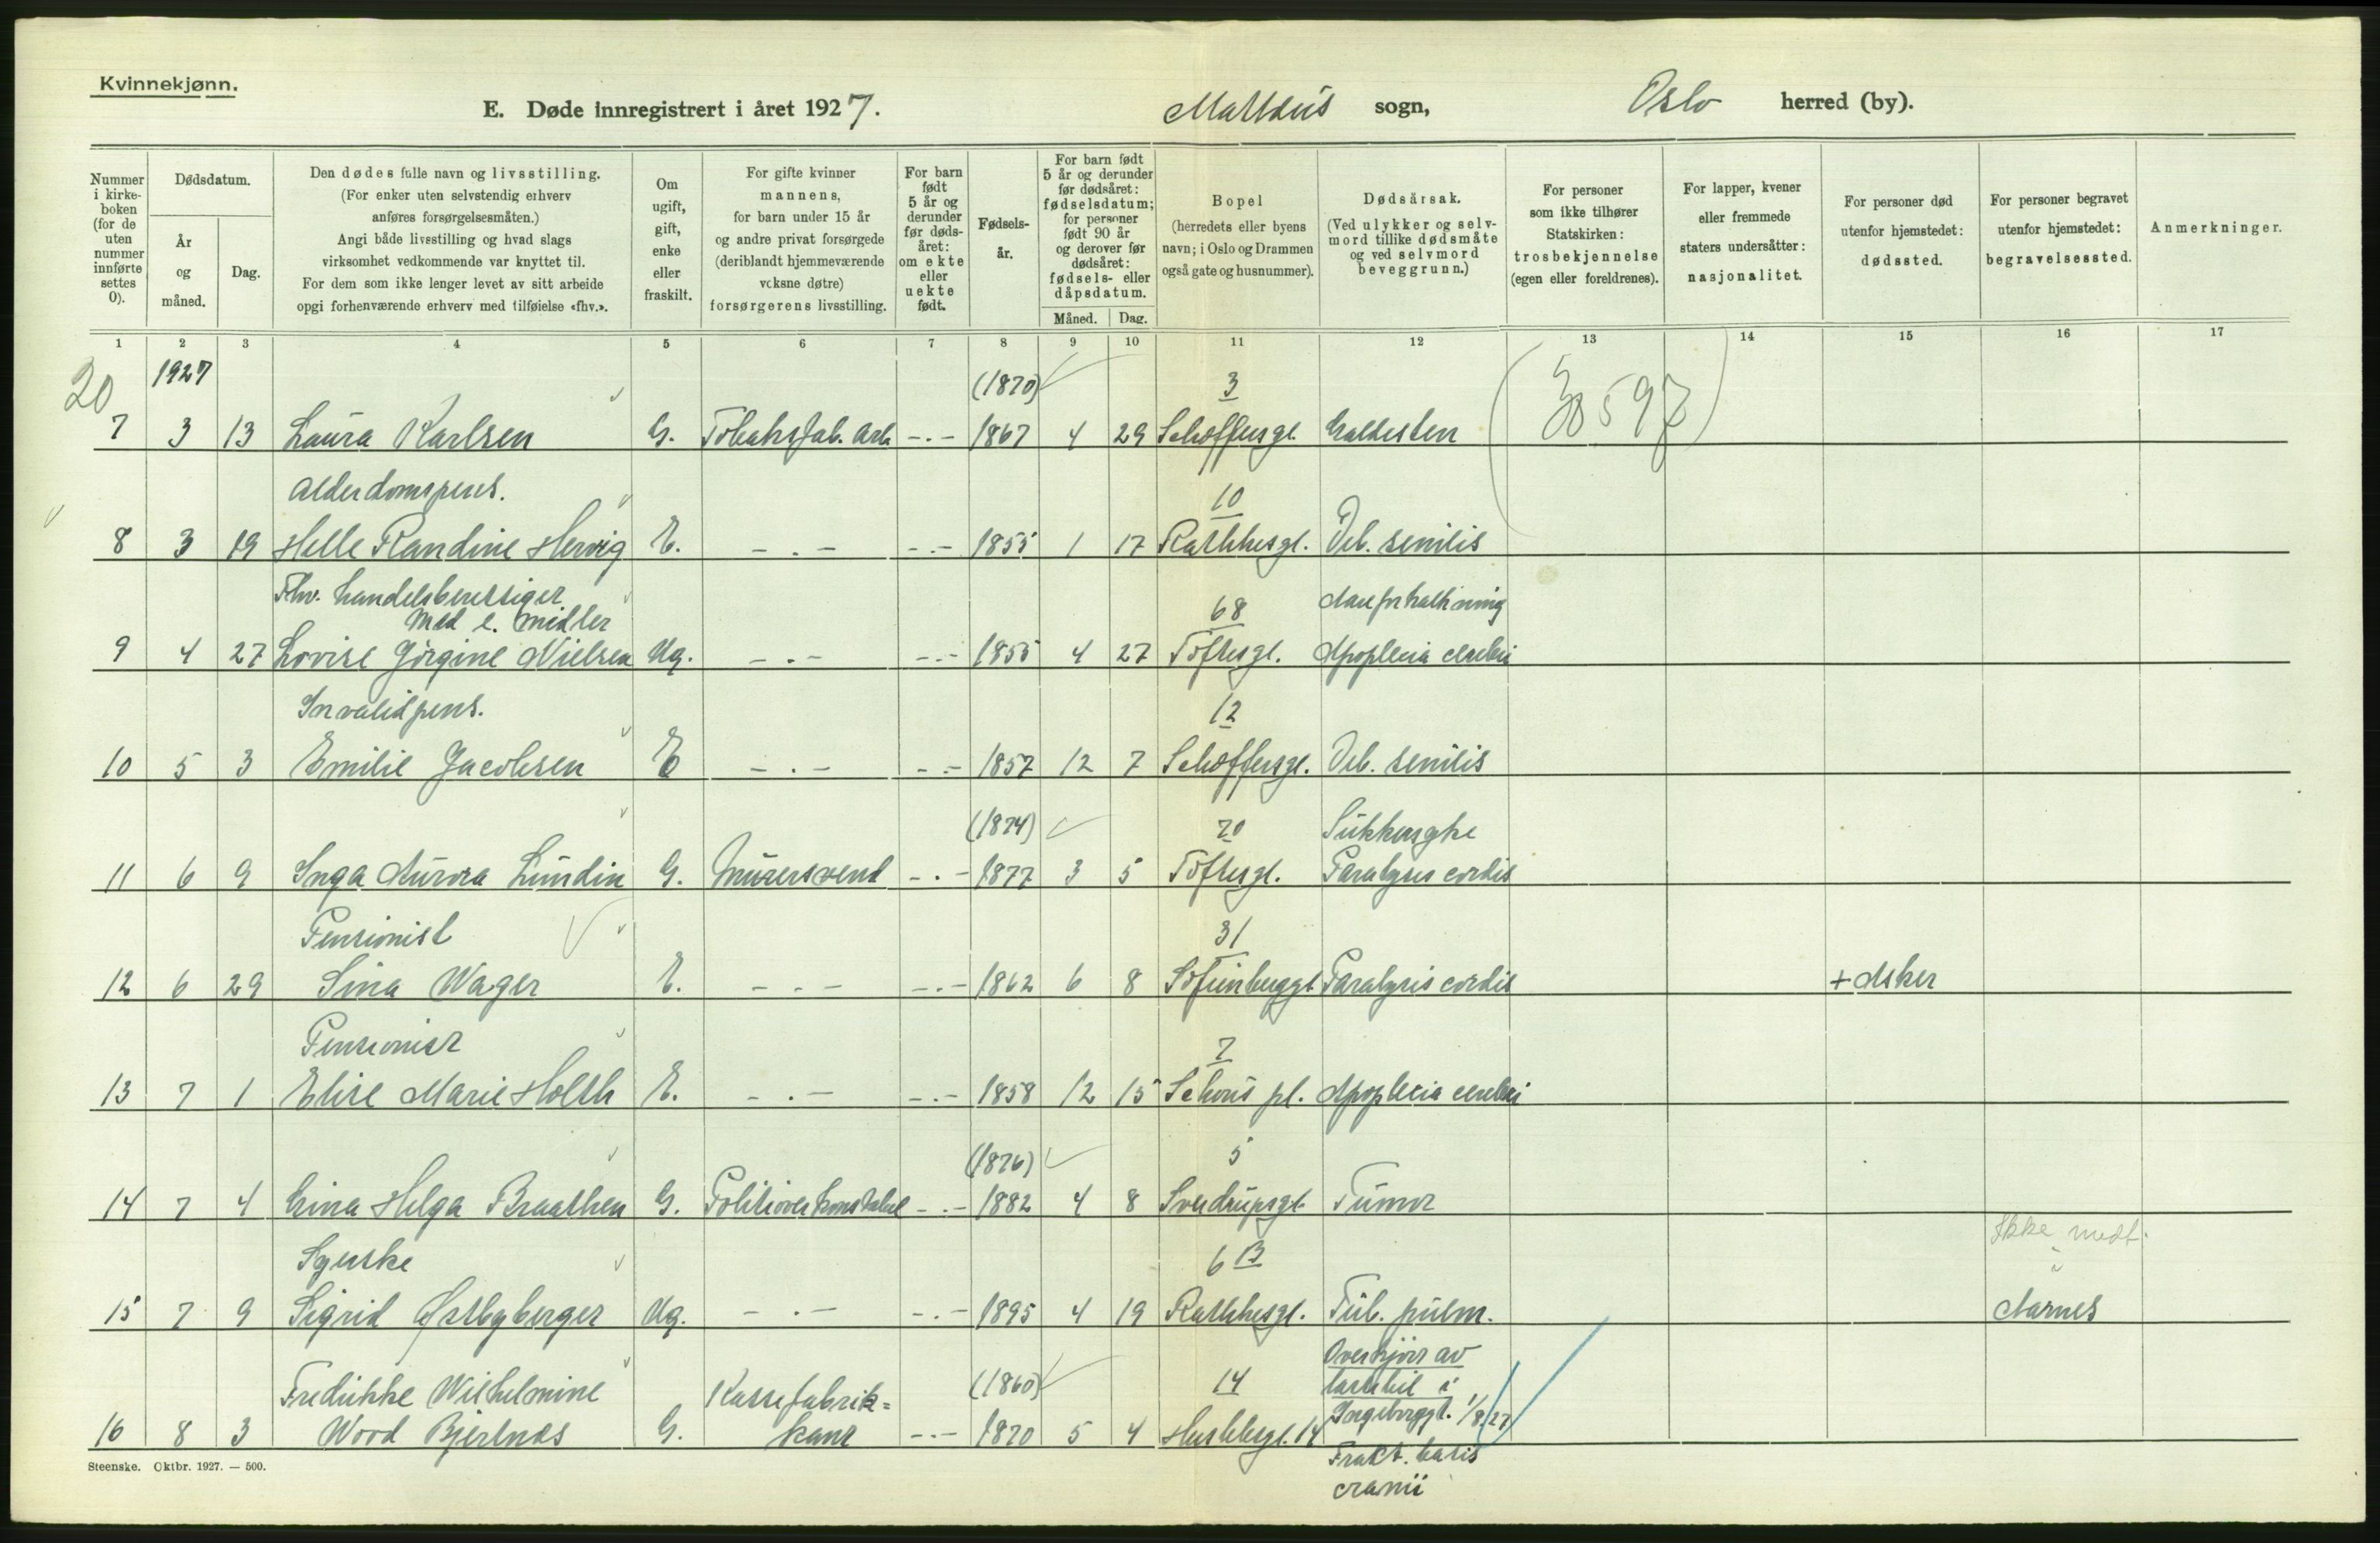 Kvinnekjønn.
E. Døde innregistrert i året 1927. Mattæus sogn, Oslo herred (by).
Nummer i kirke-boken (for de uten nummer innførte settes 0).
Dødsdatum.
År og måned.
Dag.
Den dødes fulle navn og livsstilling.
(For enker uten selvstendig erhverv
anføres forsørgelsesmåten.)
Angi både livsstilling og hvad slags
virksomhet vedkommende var knyttet til.
For dem som ikke lenger levet av sitt arbeide
opgi forhenværende erhverv med tilføielse «fhv.».
Om ugift, gift, enke eller fraskilt.
For gifte kvinner
mannens,
for barn under 15 år
og andre privat forsørgede
(deriblandt hjemmeværende
voksne døtre)
forsørgerens livsstilling.
For barn født 5 år og derunder før døds-året: om ekte eller uekte født.
Fødsels-år.
For barn født
5 år og derunder
før dødsåret:
fødselsdatum;
for personer
født 90 år
og derover før
dødsåret:
fødsels- eller
dåpsdatum.
Måned. Dag.
Bopel
(herredets eller byens
navn; i Oslo og Drammen
også gate og husnummer).
Dødsårsak.
(Ved ulykker og selv-
mord tillike dødsmåte
og ved selvmord
beveggrunn.)
For personer
som ikke tilhører
Statskirken:
trosbekjennelse
(egen eller foreldrenes).
For lapper, kvener
eller fremmede
staters undersåtter:
nasjonalitet.
For personer død
utenfor hjemstedet:
dødssted.
For personer begravet
utenfor hjemstedet:
begravelsessted.
Anmerkninger.
1 2 3 4 5 6 7 8 9 10 11 12 13 14 15 16 17
20 1927 (1870) 3
7 3 13 Laura Karlsen G. Tobaksfab. arb -.- 1867 4 29 Schoffersgt. Galdesten
Alderdomspens. 10
8 3 19 Helle Randine Hervig E. -.- -.- 1855 1 17 Rathkesgt. Deb. senilis
Fhv. handelsbetjening
med e. midler 68 Aareforkalkning
9 4 27 Lovise Jørgine Nielsen Ug. -.- -.- 1855 4 27 Toftesgt. Apoplexia cerebri
Invalidpens. 12
10 5 3 Emilie Jacobsen E -.- -.- 1857 12 7 Schoffersgt. Deb. senilis
(1874) 70 Sukkersyke
11 6 9 Inga Aurora Lundin G. Murersvend -.- 1877 3 5 Toftesgt. Paralysis cordis
Pensionist 31
12 6 29 Sina Wager E. -.- -.- 1862 6 8 Sofienberggt Paralysis cordis + Asker
Pensionist 7
13 7 1 Elise Marie Holth E. -.- -.- 1858 12 15 Schous pl. Apoplexia cerebri
(1876) 5
14 7 4 Gina Helga Braathen G. Politioverkonstabel -.- 1882 4 8 Sverdrupsgt. Tumor
Syerske 6 B Ikke medt.
15 7 9 Sigrid Østbyberger Ug. -.- -.- 1895 4 19 Rathkesgt. Tub. pulm. Aarnes
Fredrikke Wilhelmine Kassefabrik= (1860) 14 Overkjørt av
lastebil i
Ingeborggt. 1/8/27
16 8 3 Wood Bjerknes G. kant -.- 1870 5 4 Husebbsgt. 14
Frakt. basis
cranii
Steenske. Oktbr. 1927. — 500.